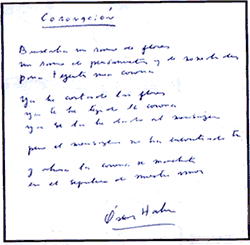 Coronación
Buscaba un ramo de flores
un ramo de pensamientos y de
para tejerte una corona
Ya he cortado las flores
ya te he tejido la corona
ya se la he dado al mensajero
pero el mensajero no ha encontrado
y ahora la corona se marchita
en el sepulcro de nuestro amor
Óscar Hahn